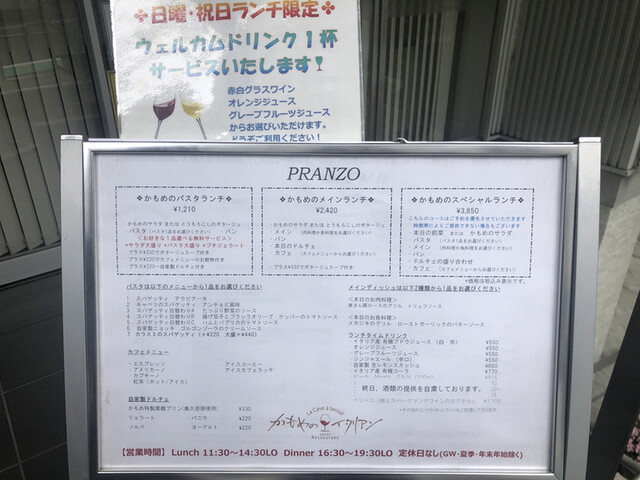 ❖日曜・祝日ランチ限定❖
ウェルカムドリンク1杯
サービスいたします
赤白グラスワイン
オレンジジュース
グレープフルーツジュース
からお選びいただけます。
どうぞご利用ください！
PRANZO
❖かもめのパスタランチ❖
¥1,210
かもめのサラダ または とうもろこしのポタージュ
・パスタ (パスタ1品をお選びください) ・パン
<お好きな1品選べる無料サービス>
*サラダ大盛り *パスタ大盛り *プチジェラート
プラス¥330でポタージュスープ付き
プラス¥220でカフェメニューのお飲物付き
プラス¥220一自家製ドルチェ付き
❖かもめのメインランチ❖
¥2,420
かもめのサラダ または とうもろこしのポタージュ
・メイン (肉料理か魚料理をお選びください)
・パン
・本日のドルチェ
・カフェ (カフェメニューからお選びください)
プラス¥330でポタージュスープ付き
❖かもめのスペシャルランチ❖
¥3,850
こちらのコースはご予約を優先させていただきます
時間帯によりご提供できない場合もございます
・本日の前菜 または かもめのサラダ
・パスタ (パスタ1品をお選びください)
・メイン (肉料理か魚料理をお選びください)
・パン
・ドルチェの盛り合わせ
・カフェ (カフェメニューからお選びください)
*価格は税込み表示です。
パスタは以下のメニューから1品をお選びください
1 スパゲッティ アラビアータ
2 キャベツのスパゲッティ アンチョビ風味
3 スパゲッティ日替わりA たっぷり野菜のソース
4 スパゲッティ日替わりB 揚げ茄子とブラックオリーブ ケッパーのトマトソース
5 スパゲッティ日替わりC ハムとバジルのトマトソース
6 自家製ニョッキ ゴルゴンゾーラのクリームソース
7 カラスミのスパゲッティ (+¥220 大盛+¥440)
メインディッシュは以下2種類から1品をお選びください
<本日のお肉料理>
<本日のお魚料理>
メカジキのグリル ローストガーリックのバターソース
カフェメニュー
・エスプレッソ ・アイスコーヒー
・アメリカーノ ・アイスカフェラッテ
・カプチーノ
・紅茶 (ホット/アイス)
自家製ドルチェ
かもめ特製窯焼プリン(奥久慈卵使用) ¥330
ジェラート ・バニラ ¥220
ソルベ ・ヨーグルト ¥220
ランチタイムドリンク
・イタリア産 有機ブドウジュース (白・赤) ¥550
・オレンジジュース ¥550
・グレープフルーツジュース ¥550
・ジンジャエール (辛口) ¥550
・自家製 生レモンスカッシュ ¥660
・イタリア産 有機コーラ ¥770
終日、酒類の提供を自粛しております。
La Cave à terroir
かもめのイタリアン
Restaurant
【営業時間】 Lunch 11:30～14:30LO Dinner 16:30～19:30LO 定休日なし(GW・夏季・年末年始除く)